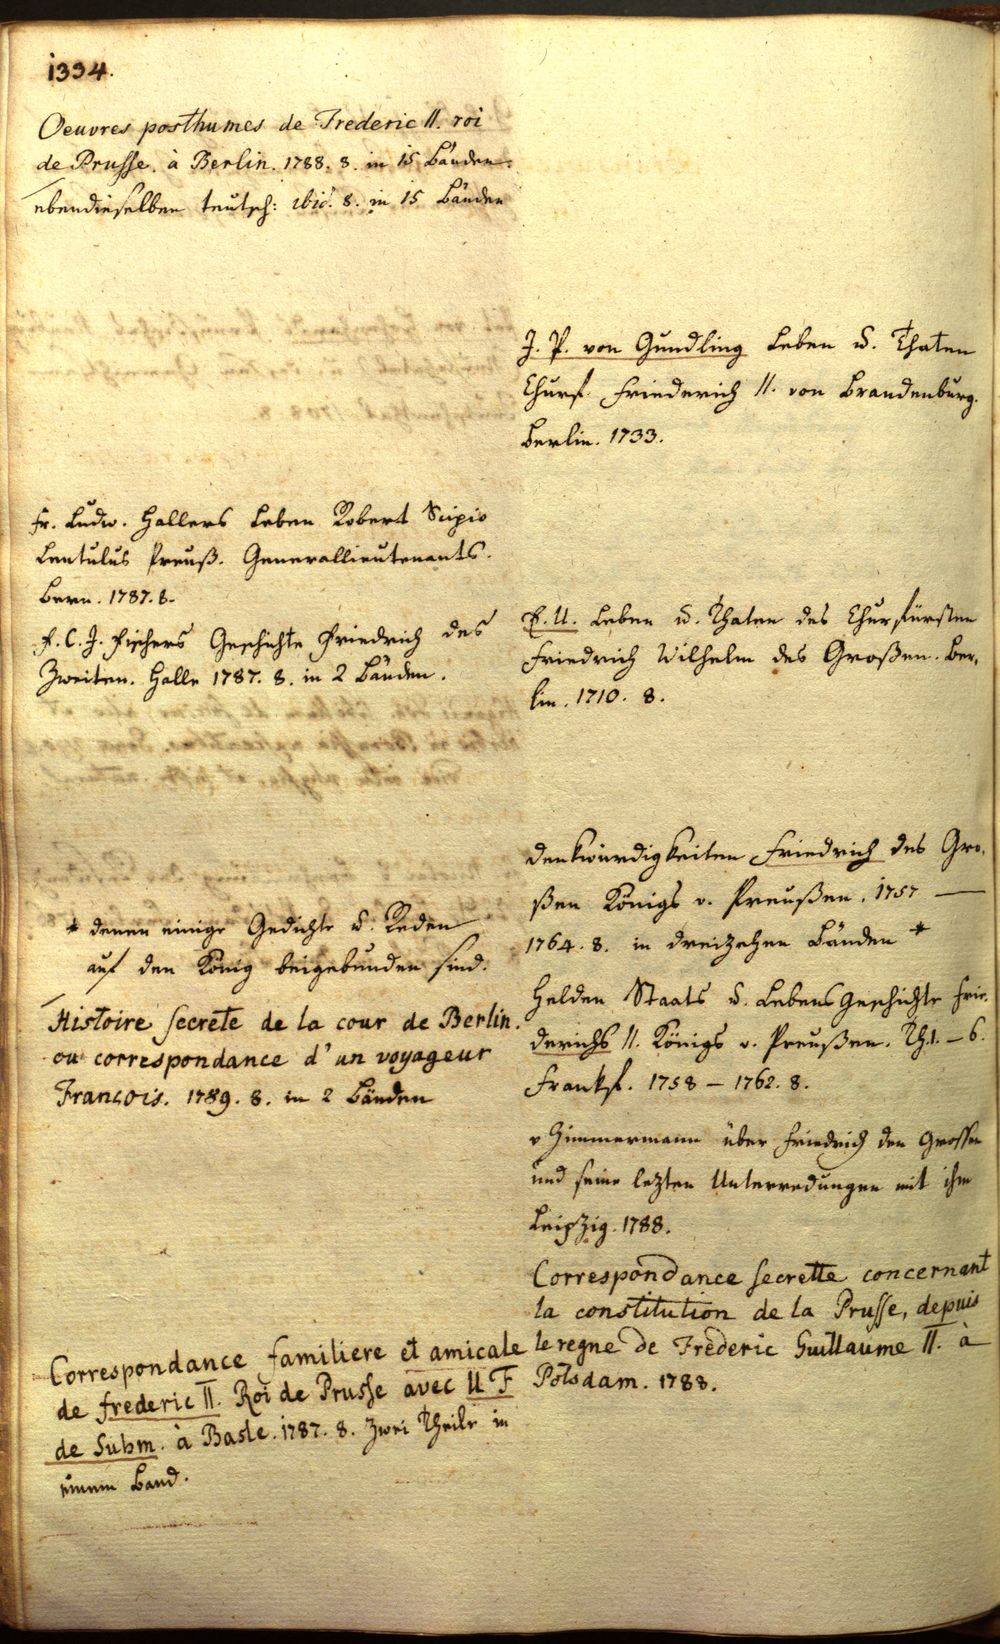 1334.
Oeuvres posthumes de Frederic II. roi
de Prusse. à Berlin. 1788. 8. in 15 Bänden.
ebendieselben teutsch: ibid. 8. in 15 Bänden
Fr. Ludw. Hallers Leben Robert Scipio
Lentulus Preuß. Generallieutenants.
Bern. 1787. 8.
F. C. J. Fischers Geschichte Friedrich des
Zweiten. Halle 1787. 8. in 2 Bänden.
* denen einige Gedichte u. Reden
auf den König beigebunden sind.
Histoire secrete de la cour de Berlin.
ou correspondance d'un voyageur
Francois. 1789. 8. in 2 Bänden
Correspondance familiere et amicale
de frederic II. Roi de Prusse avec U F
de Suhm. à Basle. 1787. 8. zwei Theile in
einem Band.
J. P. von Gundling Leben u. Thaten
Churf. Friederich II. von Brandenburg.
Berlin. 1733.
F. U. Leben u. Thaten des Churfürsten
Friedrich Wilhelm des Großen. Ber,
lin. 1710. 8.
Denkwürdigkeiten Friedrich des Gro,
ßen Königs v. Preußen. 1757 —
1764. 8. in dreizehen Bänden *
Helden Staats u. Lebens Geschichte Frie,
derichs II. Königs v. Preußen. Th. 1. – 6.
Frankf. 1758 – 1762. 8.
v Zimmermann über Friedrich den Grossen
und seine lezten Unterredungen mit ihm
Leipzig. 1788.
Correspondance secrette concernant
la constitution de la Prusse, depuis
le regne de Frederic Guillaume II. à
Potsdam. 1788.